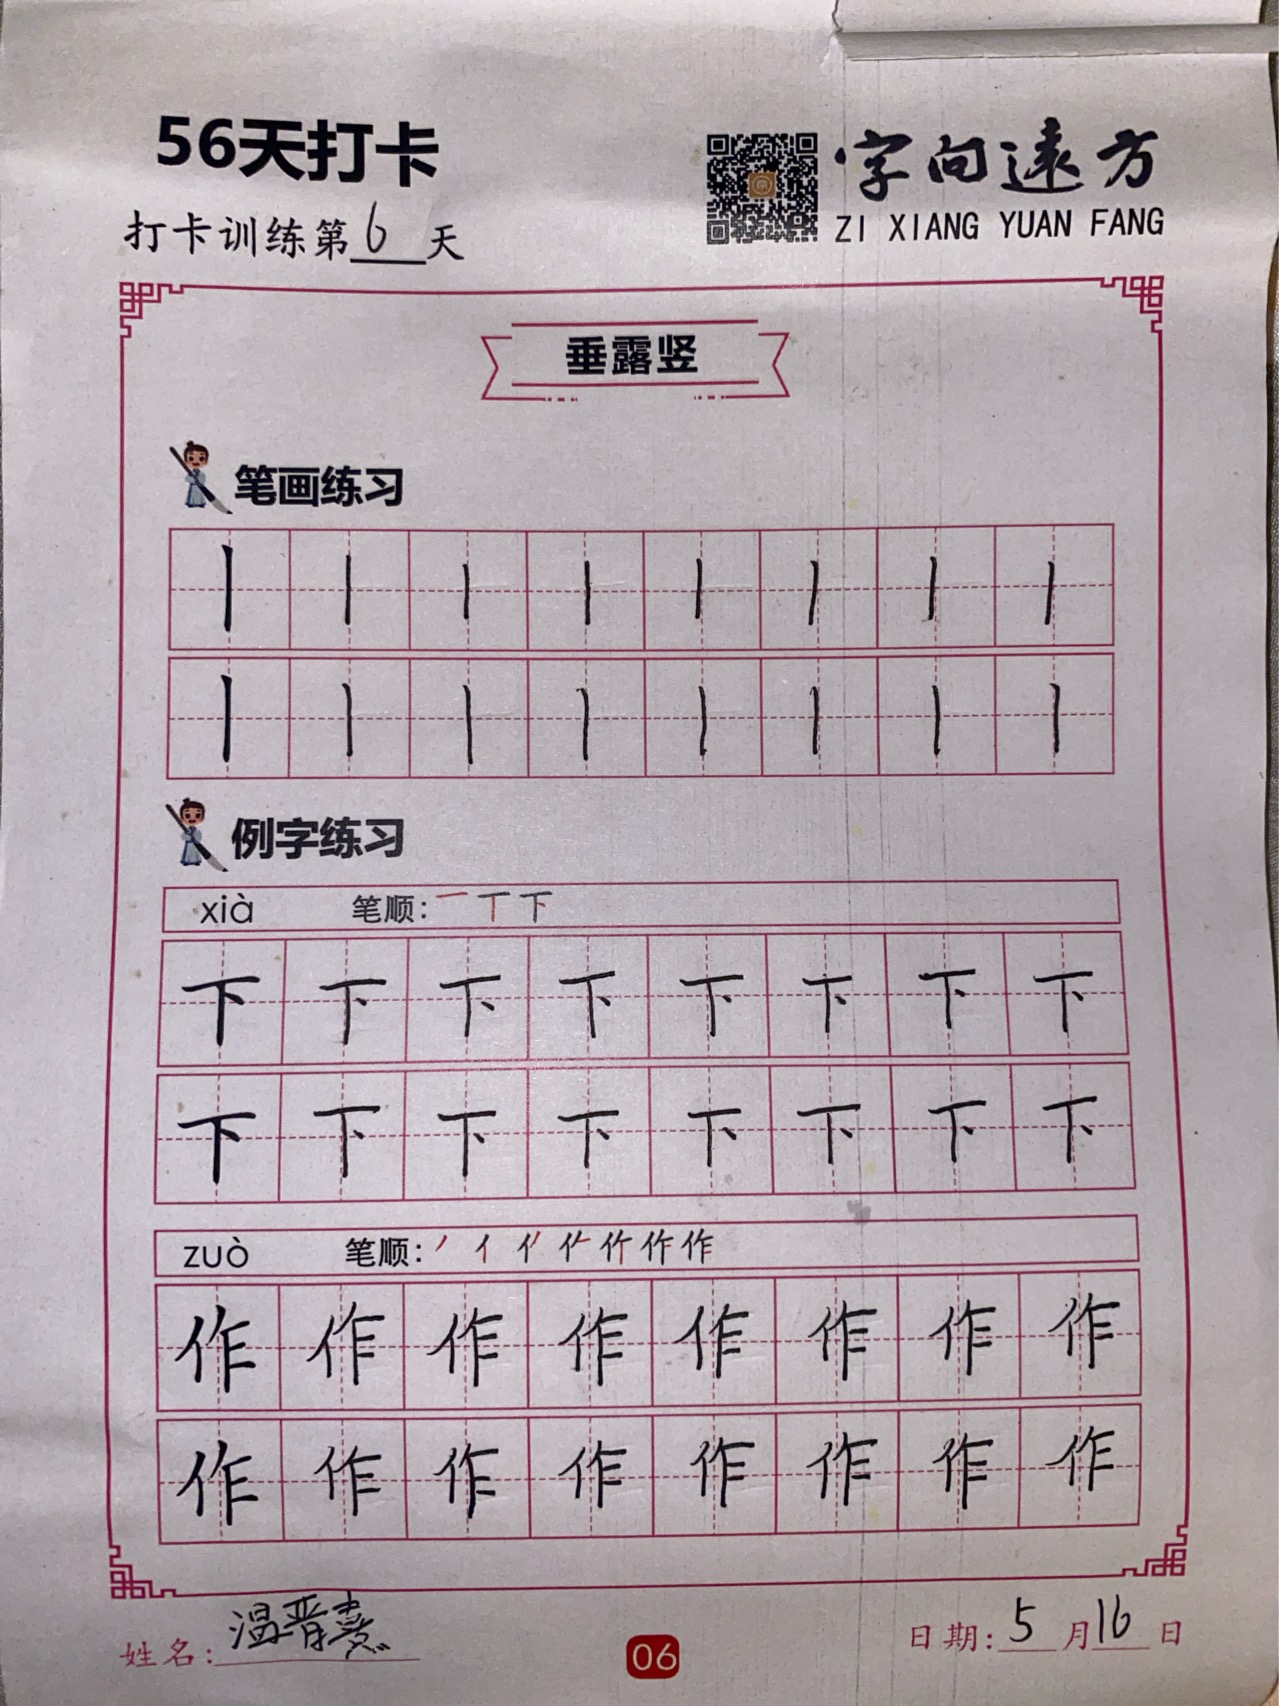 56天打卡
字向遠方
ZI XIANG YUAN FANG
打卡训练第6天
垂露竖
笔画练习
丨丨丨丨丨丨丨丨
丨丨丨丨丨丨丨丨
例字练习
xià 笔顺：一丅下
下下下下下下下下
下下下下下下下下
zuò 笔顺：丿亻作
作作作作作作作作
作作作作作作作作
姓名：温晋熹
06
日期：5月16日